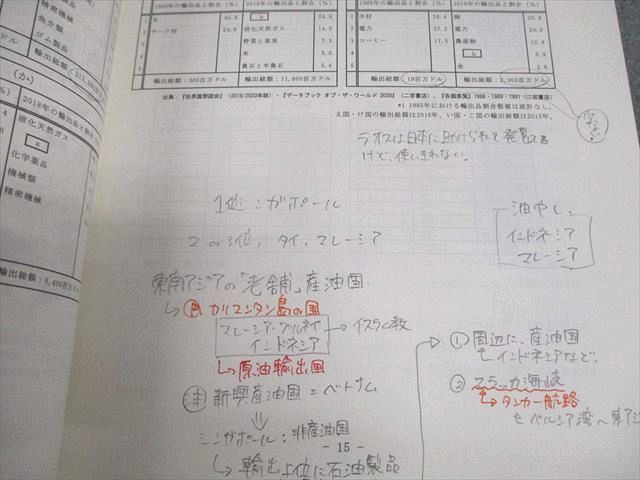 1992年の輸出品と割合(%)
2018年の輸出品と割合(%)
1985年の輸出品と割合(%)
2018年の輸出品と割合(%)
精密機械
魚介類
ゴム製品
液化天然ガス
野菜と果実
米
貴石と半貴石
輸出総額:300百万ドル
輸出総額:11,800百万ドル
木材
電力
コーヒー
銅
電力
農産物
金
輸出総額:19百万ドル
輸出総額:2,300百万ドル
少ない
出典:『世界国勢図会』(2019/2020年版)・『データブック オブ・ザ・ワールド 2020』(二宮書店)、『各国要覧』1986・1989・1991(二宮書店)
*1 1985年における輸出品割合数値は統計なし。
え国・け国の輸出総額は2016年、い国・こ国の輸出総額は2015年。
(か)
2018年の輸出品と割合(%)
液化天然ガス
化学薬品
機械類
精密機械
輸出総額:6,400百万ドル
ラオスは日本に助けられて発電してる
けど、使いきれない。
1位 シンガポール
2or3位, タイ, マレーシア
油やし:
インドネシア
マレーシア
東南アジアの「老舗」産油国
カリマンタン島の国
マレーシア・ブルネイ
インドネシア
→イスラム教
原油輸出国
注 新興産油国=ベトナム
シンガポール:非産油国
輸出上位に石油製品
① 周辺に、産油国
インドネシアなど。
② マラッカ海峡
タンカー航路
ペルシア湾〜東ア
- 15 -